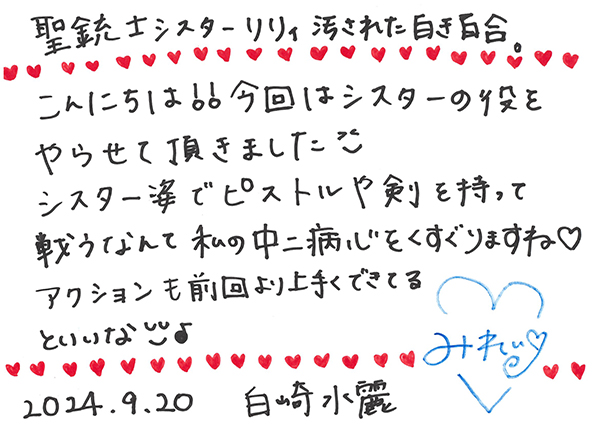 聖銃士シスターリリィ 汚された白き百合。
こんにちは!! 今回はシスターの役を
やらせて頂きました
シスター姿でピストルや剣を持って
戦うなんて 私の中二病心をくすぐりますね♡
アクションも前回より上手くできてる
といいな♪
みれい♡
2024.9.20 白崎水麗